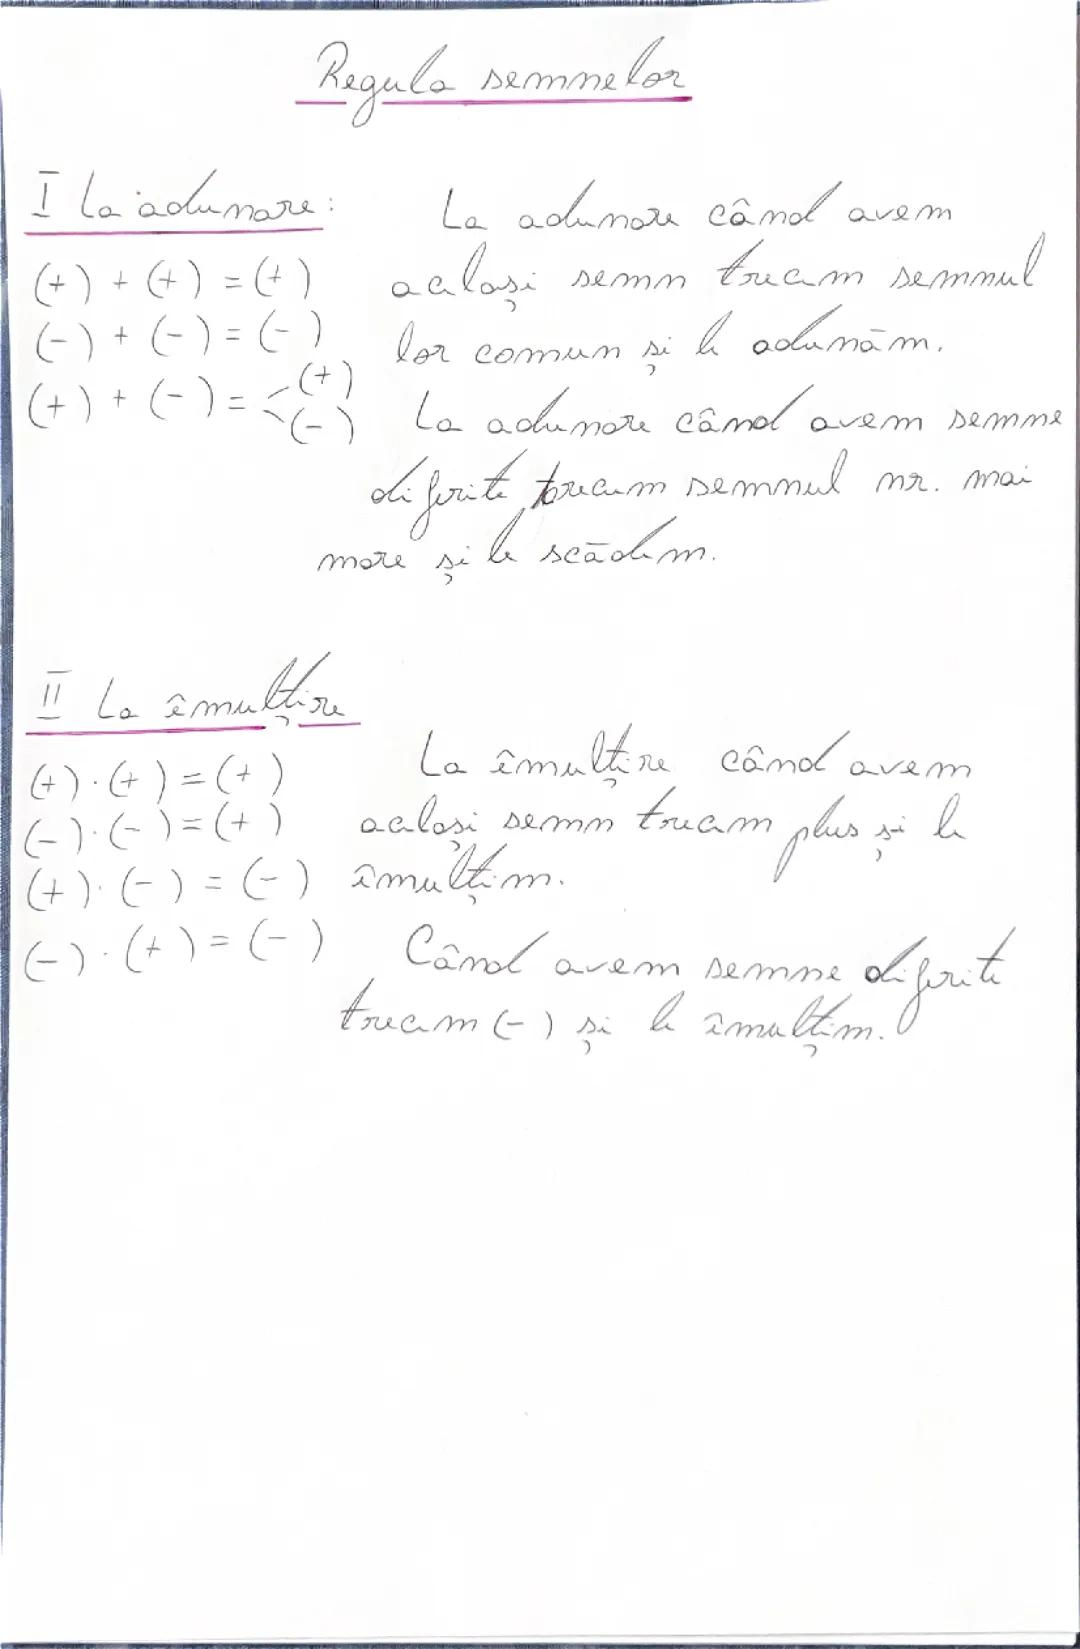 Regula semnelor
I La adunare:
(+) + (+) = (+)
(-) + (-) = (-)
(+) + (-) = < (+)
(-)
La adunare când avem
același semn trecem semnul
lor comun și le adunăm.
La adunare când avem semne
diferite trecem semnul nr. mai
mare și le scădem.
II La îmulțire
(+) · (+) = (+)
(-) · (-) = (+)
(+) · (-) = (-)
(-) · (+) = (-)
La îmulțire când avem
același semn trecem plus și le
îmulțim.
Când avem semne diferite
trecem (-) și le îmulțim.